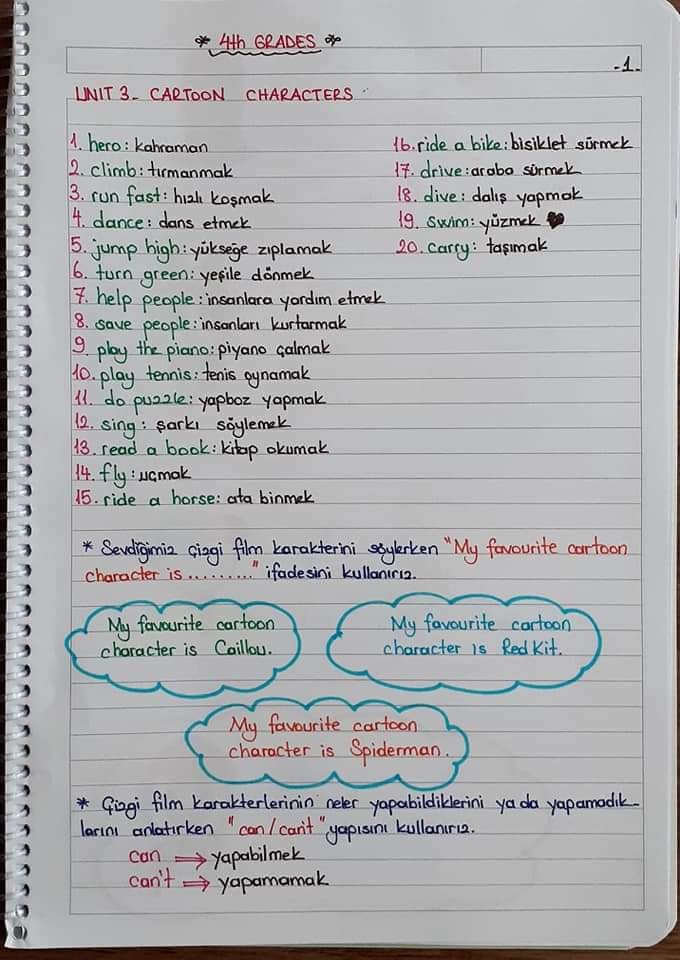 * 4th GRADES *
-1-
UNIT 3- CARTOON CHARACTERS
1. hero: kahraman
2. climb: tırmanmak
3. run fast: hızlı koşmak
4. dance: dans etmek
5. jump high: yükseğe zıplamak
6. turn green: yeşile dönmek
7. help people: insanlara yardım etmek
8. save people: insanları kurtarmak
9. play the piano: piyano çalmak
10. play tennis: tenis oynamak
11. do puzzle: yapboz yapmak
12. sing: şarkı söylemek
13. read a book: kitap okumak
14. fly: uçmak
15. ride a horse: ata binmek
16. ride a bike: bisiklet sürmek
17. drive: araba sürmek
18. dive: dalış yapmak
19. swim: yüzmek
20. carry: taşımak
* Sevdiğimiz çizgi film karakterini söylerken "My favourite cartoon
character is ........." ifadesini kullanırız.
My favourite cartoon
character is Caillou.
My favourite cartoon
character is Red Kit.
My favourite cartoon
character is Spiderman.
* Çizgi film karakterlerinin neler yapabildiklerini ya da yapamadık-
larını anlatırken "can/can't" yapısını kullanırız.
can ⇒ yapabilmek
can't ⇒ yapamamak